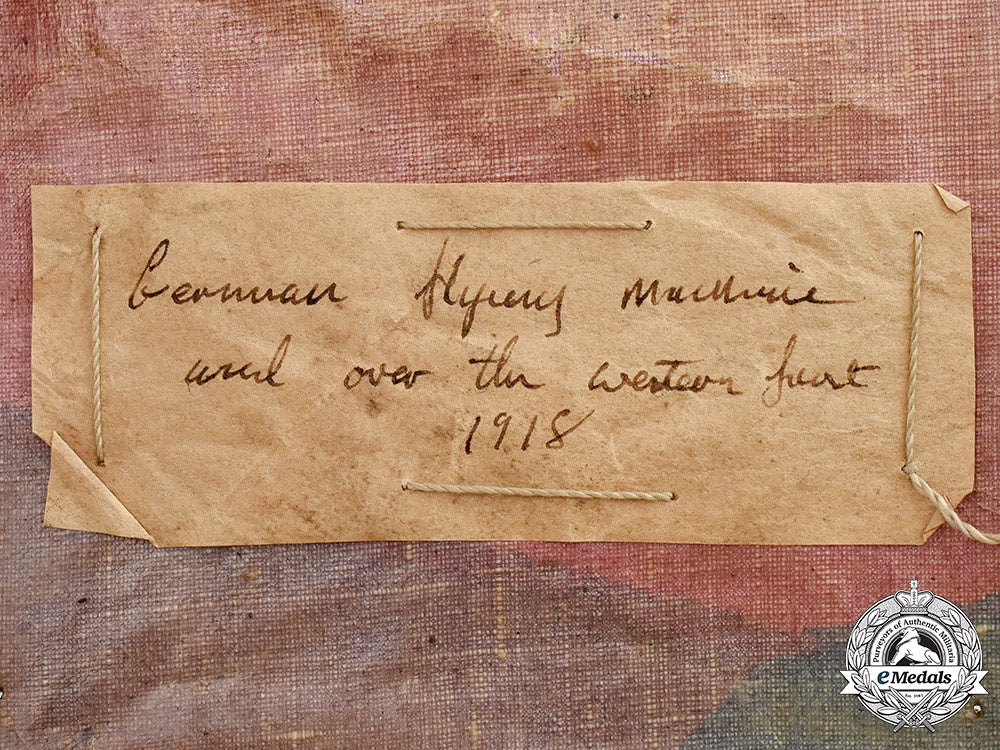 German Flying machine
used over the western front
1918
Purveyors of Authentic Militaria
eMedals